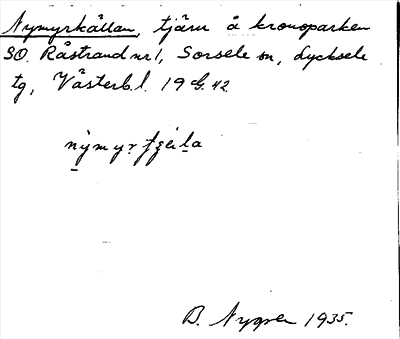 Nymyrkällan, tjärn å kronoparken
SO. Råstrand nr 1, Sorsele sn, Lycksele
tg, Västerb. l. 19 G. 42
B. Nygren 1935.